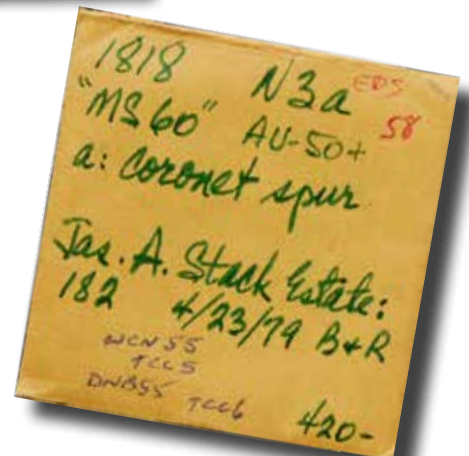 1818 N3a EDS
"MS60" AU-50+ 58
a: coronet spur
Jas. A. Stack Estate:
182 4/23/79 B+R
WCN 55
TCC5
DNB55 TCC6
420-